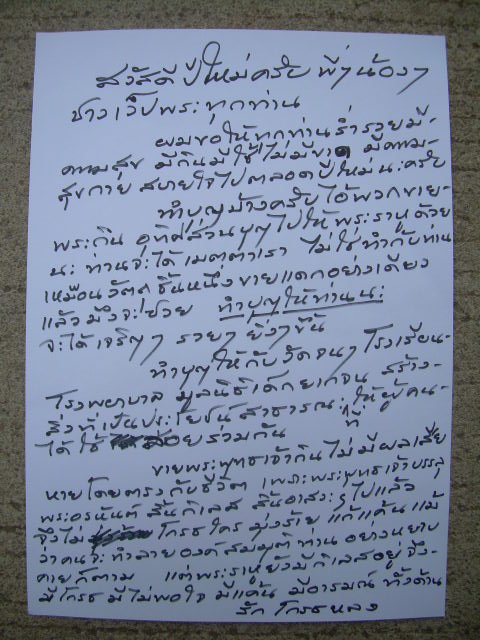 สวัสดีปีใหม่ครับ พี่ๆน้องๆ
ชาวเว็ปพระทุกท่าน
ผมขอให้ทุกท่านร่ำรวยมี-
ความสุข มีกินมีใช้ไม่มีขาด มีความ-
สุขกาย สบายใจไปตลอดปีใหม่นะครับ
ทำบุญบ้างครับไอ้พวกขาย-
พระกิน อุทิศส่วนบุญไปให้พระราหูด้วย
นะ ท่านจะได้เมตตาเรา ไม่ใช่ทำกับท่าน
เหมือนวัตถุชิ้นหนึ่งขายแดกอย่างเดียว
แล้วมึงจะซวย ทำบุญให้ท่านนะ
จะได้เจริญๆ รวยๆ ยิ่งๆขึ้น
ทำบุญให้กับวัดจนๆ โรงเรียน-
โรงพยาบาล มูลนิธิเด็กยากจน สร้าง-
สิ่งที่เป็นประโยชน์สาธารณะให้ผู้คน-
ได้ใช้สอยร่วมกัน
ขายพระพุทธเจ้ากินไม่มีผลเสีย
หายโดยตรงกับชีวิต เพราะพระพุทธเจ้าบรรลุ
พระอรหันต์ สิ้นกิเลส สิ้นอาสวะๆไปแล้ว
จึงไม่ โกรธใคร มุ่งร้าย แก้แค้น แม้
ว่าคนจะทำลายองค์สมมุติท่านอย่างหยาบ
คายก็ตาม แต่พระราหูยังมีกิเลสอยู่จึง-
มีโกรธ มีไม่พอใจ มีแค้น มีอารมณ์ทั้งด้าน
รัก โกรธ หลง